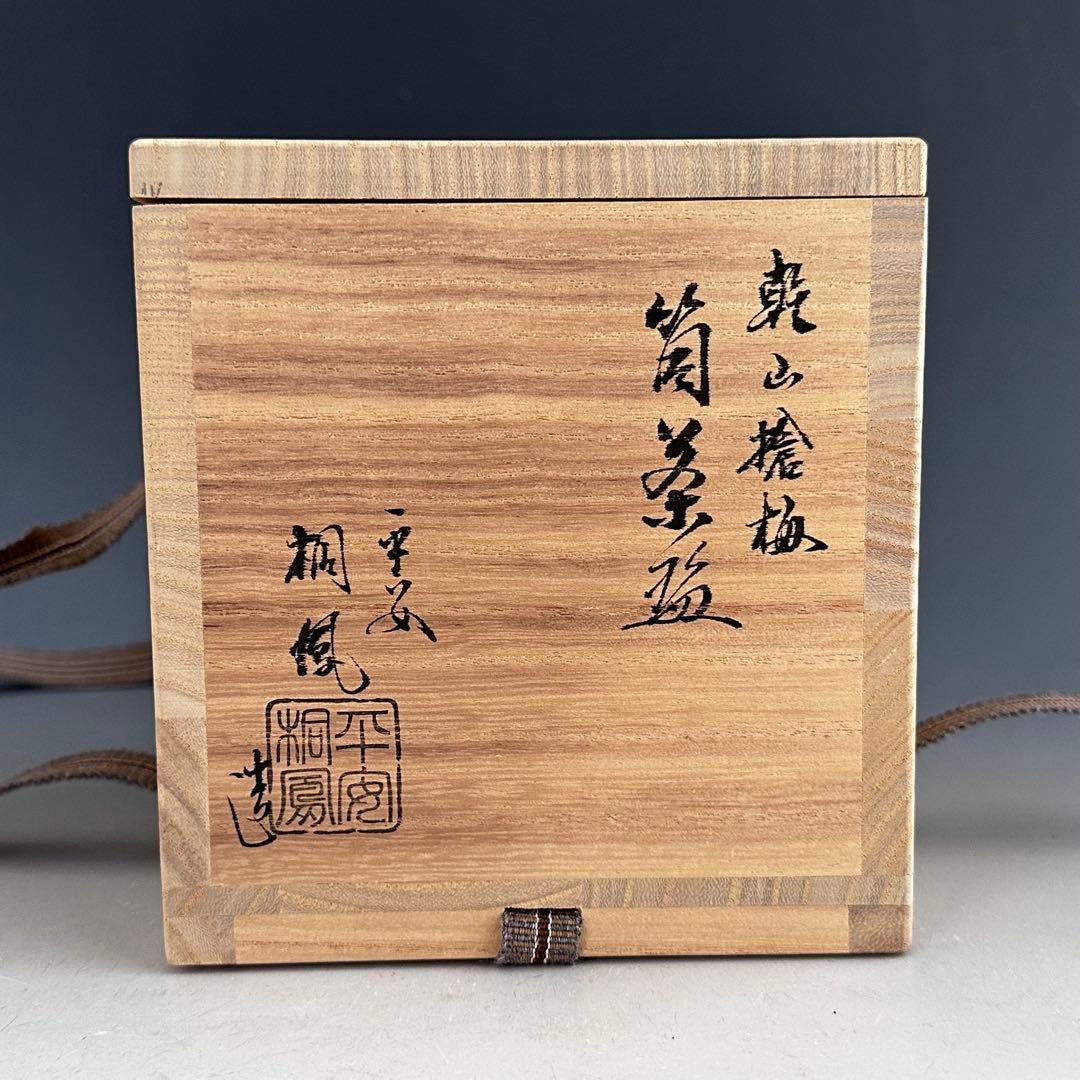 乾山捨梅
筒茶盌
平安
桐鳳
造
平安
桐鳳